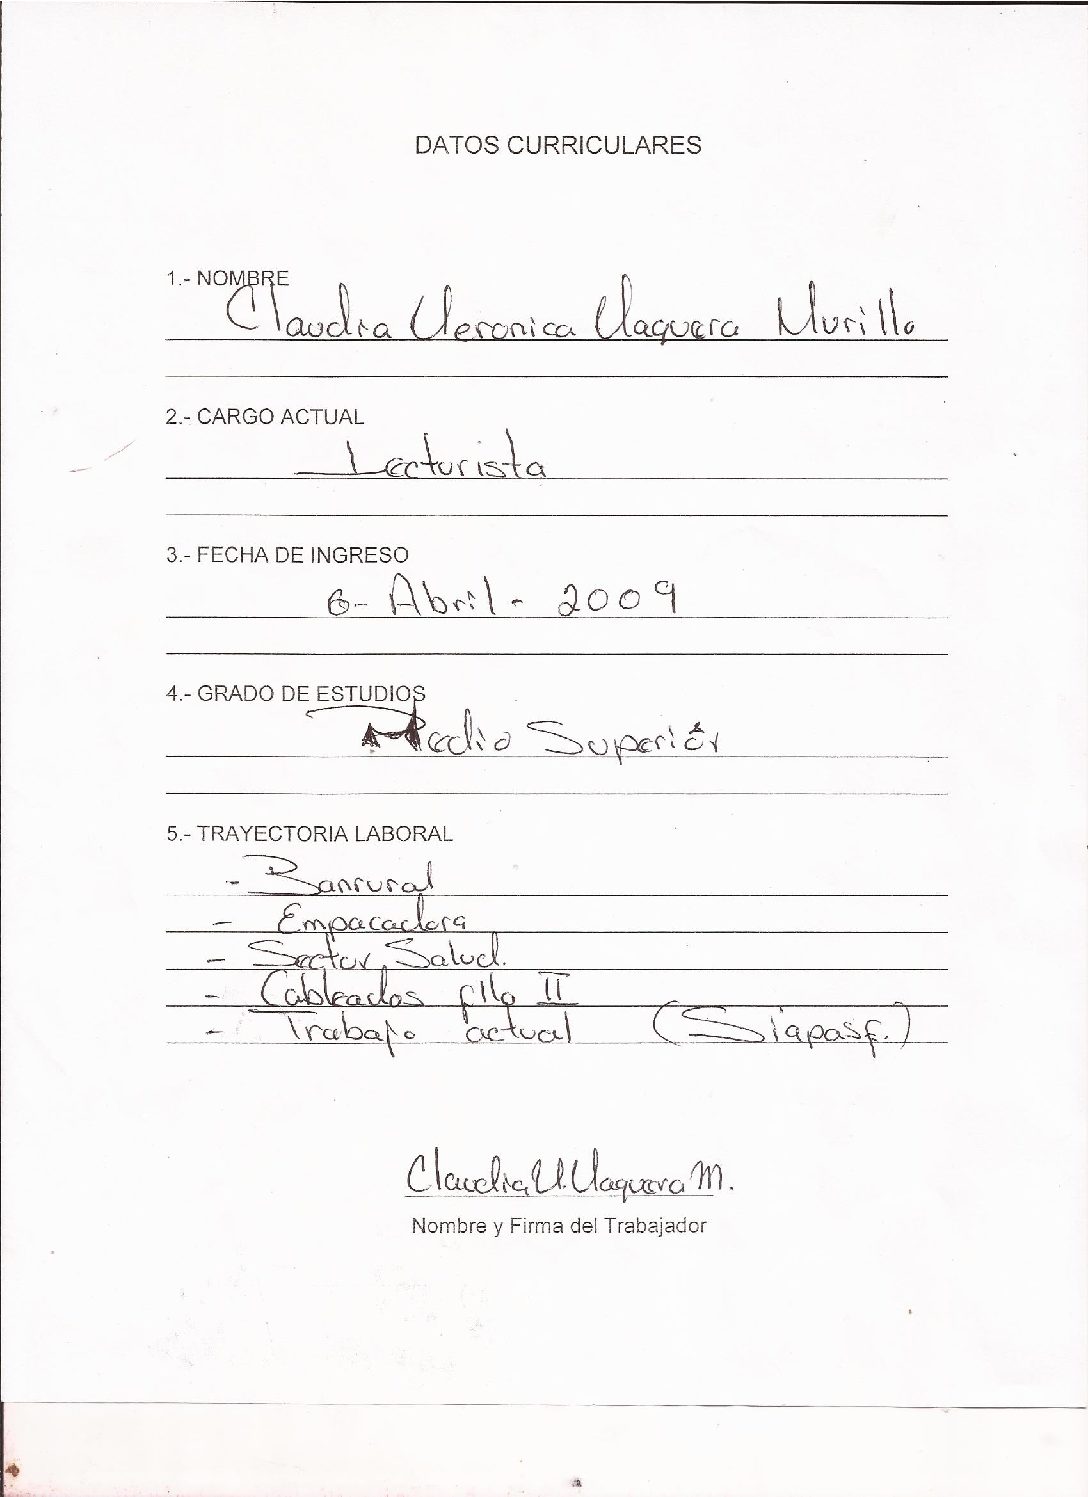 DATOS CURRICULARES
1.- NOMBRE
Claudia Veronica Vaquera Murillo
2.- CARGO ACTUAL
Lecturista
3.- FECHA DE INGRESO
6- Abril - 2009
4.- GRADO DE ESTUDIOS
Medio Superiór
5.- TRAYECTORIA LABORAL
- Banrural
- Empacadora
- Sector Salud.
- Cableados fllo II
- Trabajo actual (Siapasf.)
Claudia V. Vaquera M.
Nombre y Firma del Trabajador